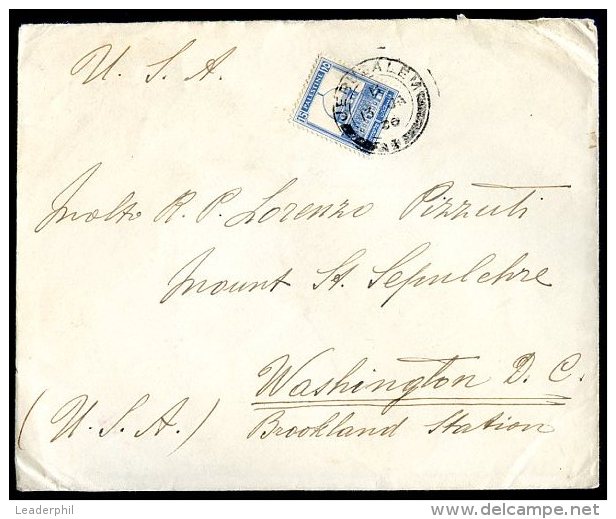 U. S. A.
15 PALESTINE 15
JERUSALEM
36
Molto R. P. Lorenzo Pizzuti
Mount St. Sepulchre
Washington D. C.
(U. S. A.) Brookland Station
Leaderphil
www.delcampe.net